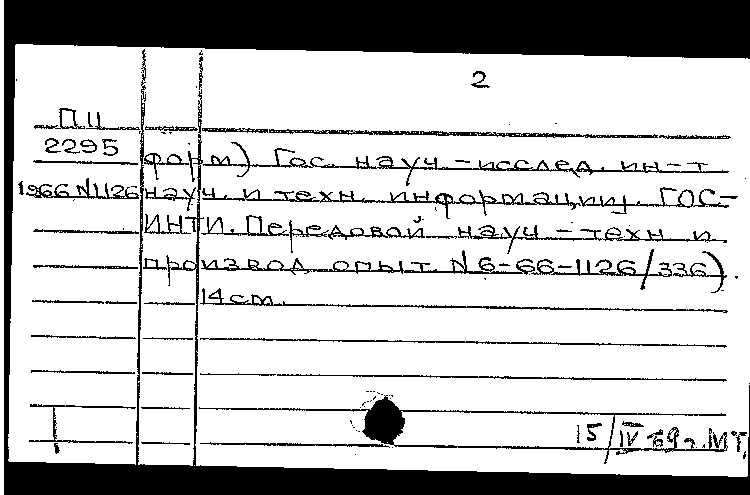 2
П II
2295 форм). Гос. науч.-исслед. ин-т
1966 N1126 науч. и техн. информации. ГОС-
ИНТИ. Передовой науч-техн и
производ опыт. N 6-66-1126/336).
14 см.
15/IV 69г. МТ,